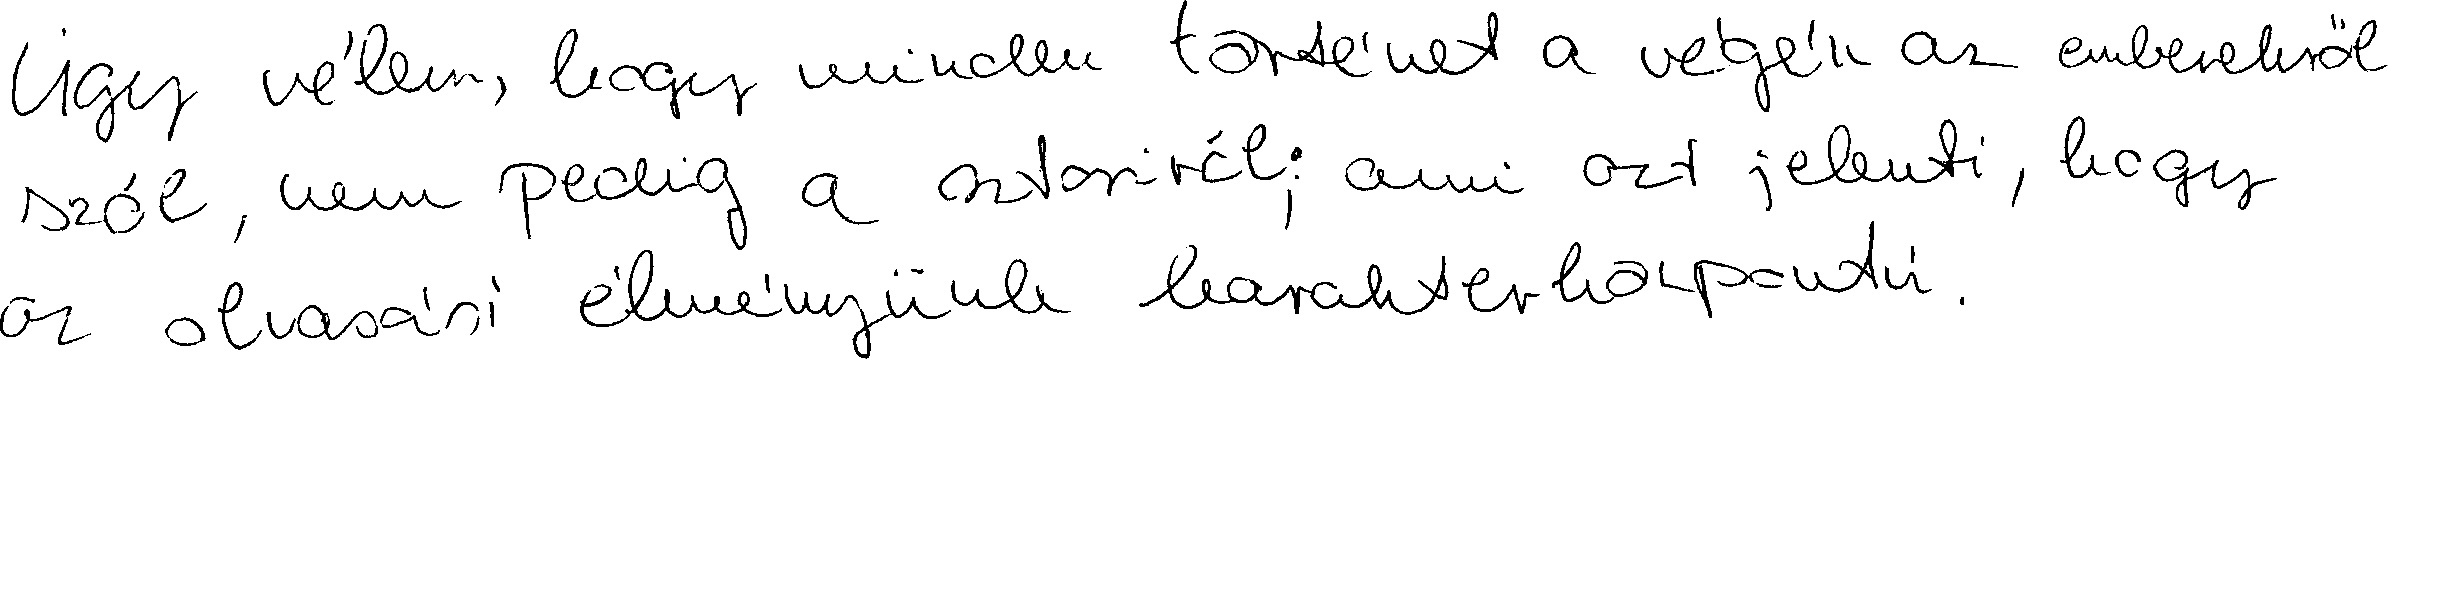 Úgy vélem, hogy minden történet a végén az emberekről
szól, nem pedig a sztoriról; ami azt jelenti, hogy
az olvasási élményünk karakterközpontú.